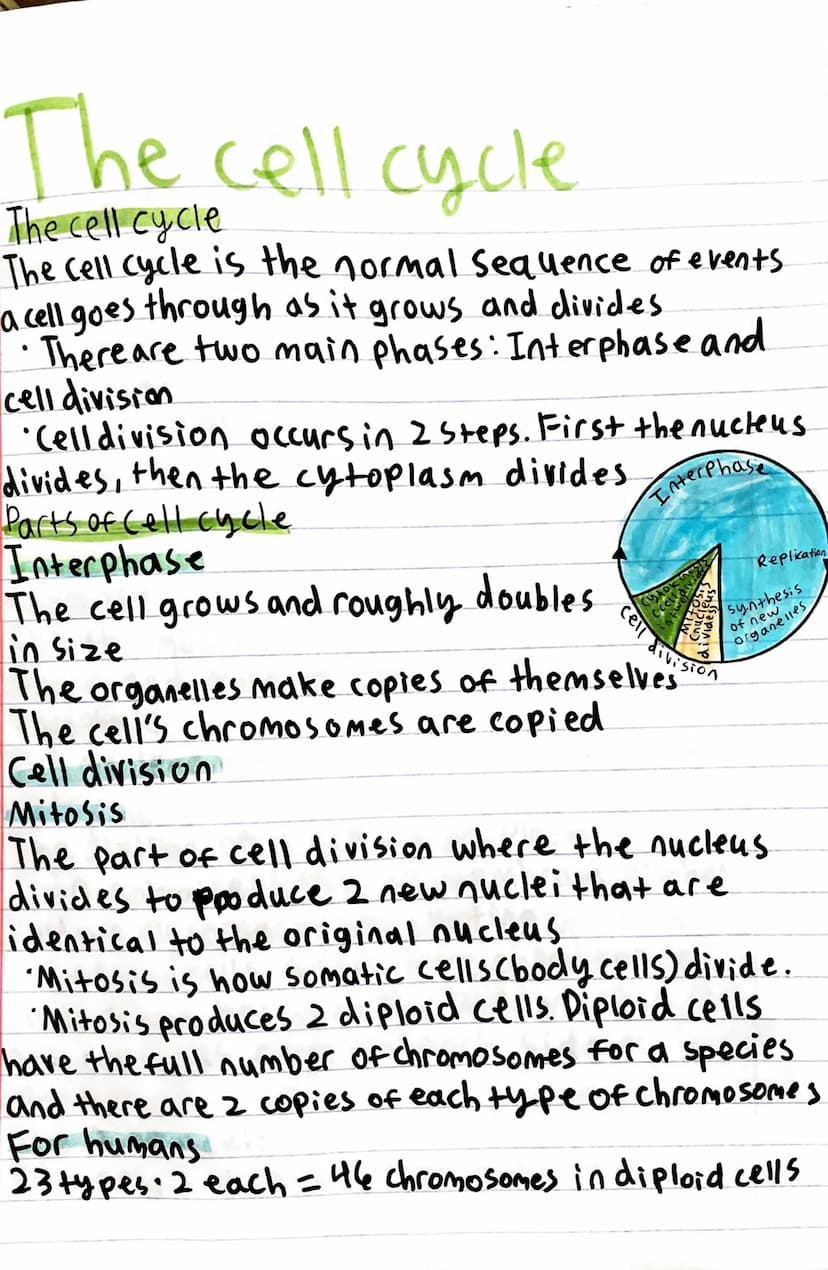 The cell cycle
The cell cycle
The cell cycle is the normal sequence of events
a cell goes through as it grows and divides
· There are two main phases: Interphase and
cell division
· Cell division occurs in 2 steps. First the nucleus
divides, then the cytoplasm divides
Parts of cell cycle
Interphase
The cell grows and roughly doubles
in size
The organelles make copies of themselves
The cell's chromosomes are copied
Interphase
Replication
synthesis
of new
organelles
Mitosis
(nucleus
divides)
cell division
Cell division
Mitosis
The part of cell division where the nucleus
divides to produce 2 new nuclei that are
identical to the original nucleus
· Mitosis is how somatic cells (body cells) divide.
· Mitosis produces 2 diploid cells. Diploid cells
have the full number of chromosomes for a species
and there are 2 copies of each type of chromosomes
For humans
23 types · 2 each = 46 chromosomes in diploid cells